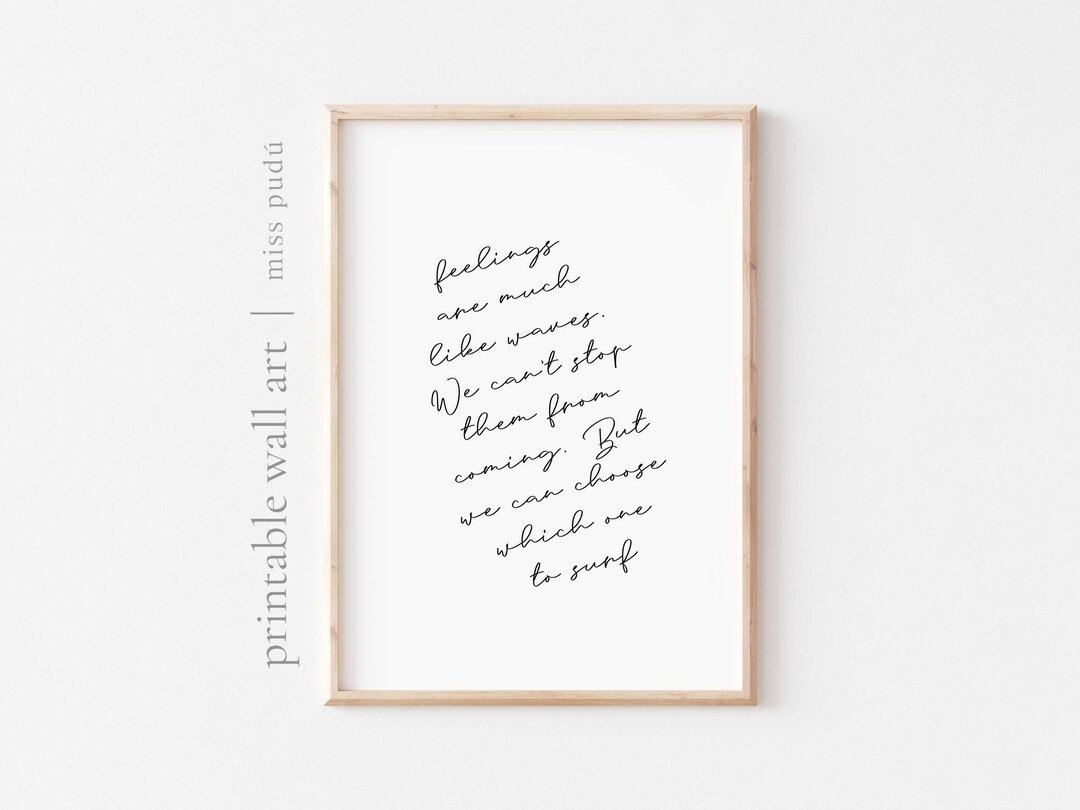 feelings
are much
like waves.
We can't stop
them from
coming. But
we can choose
which one
to surf
printable wall art | miss pudú